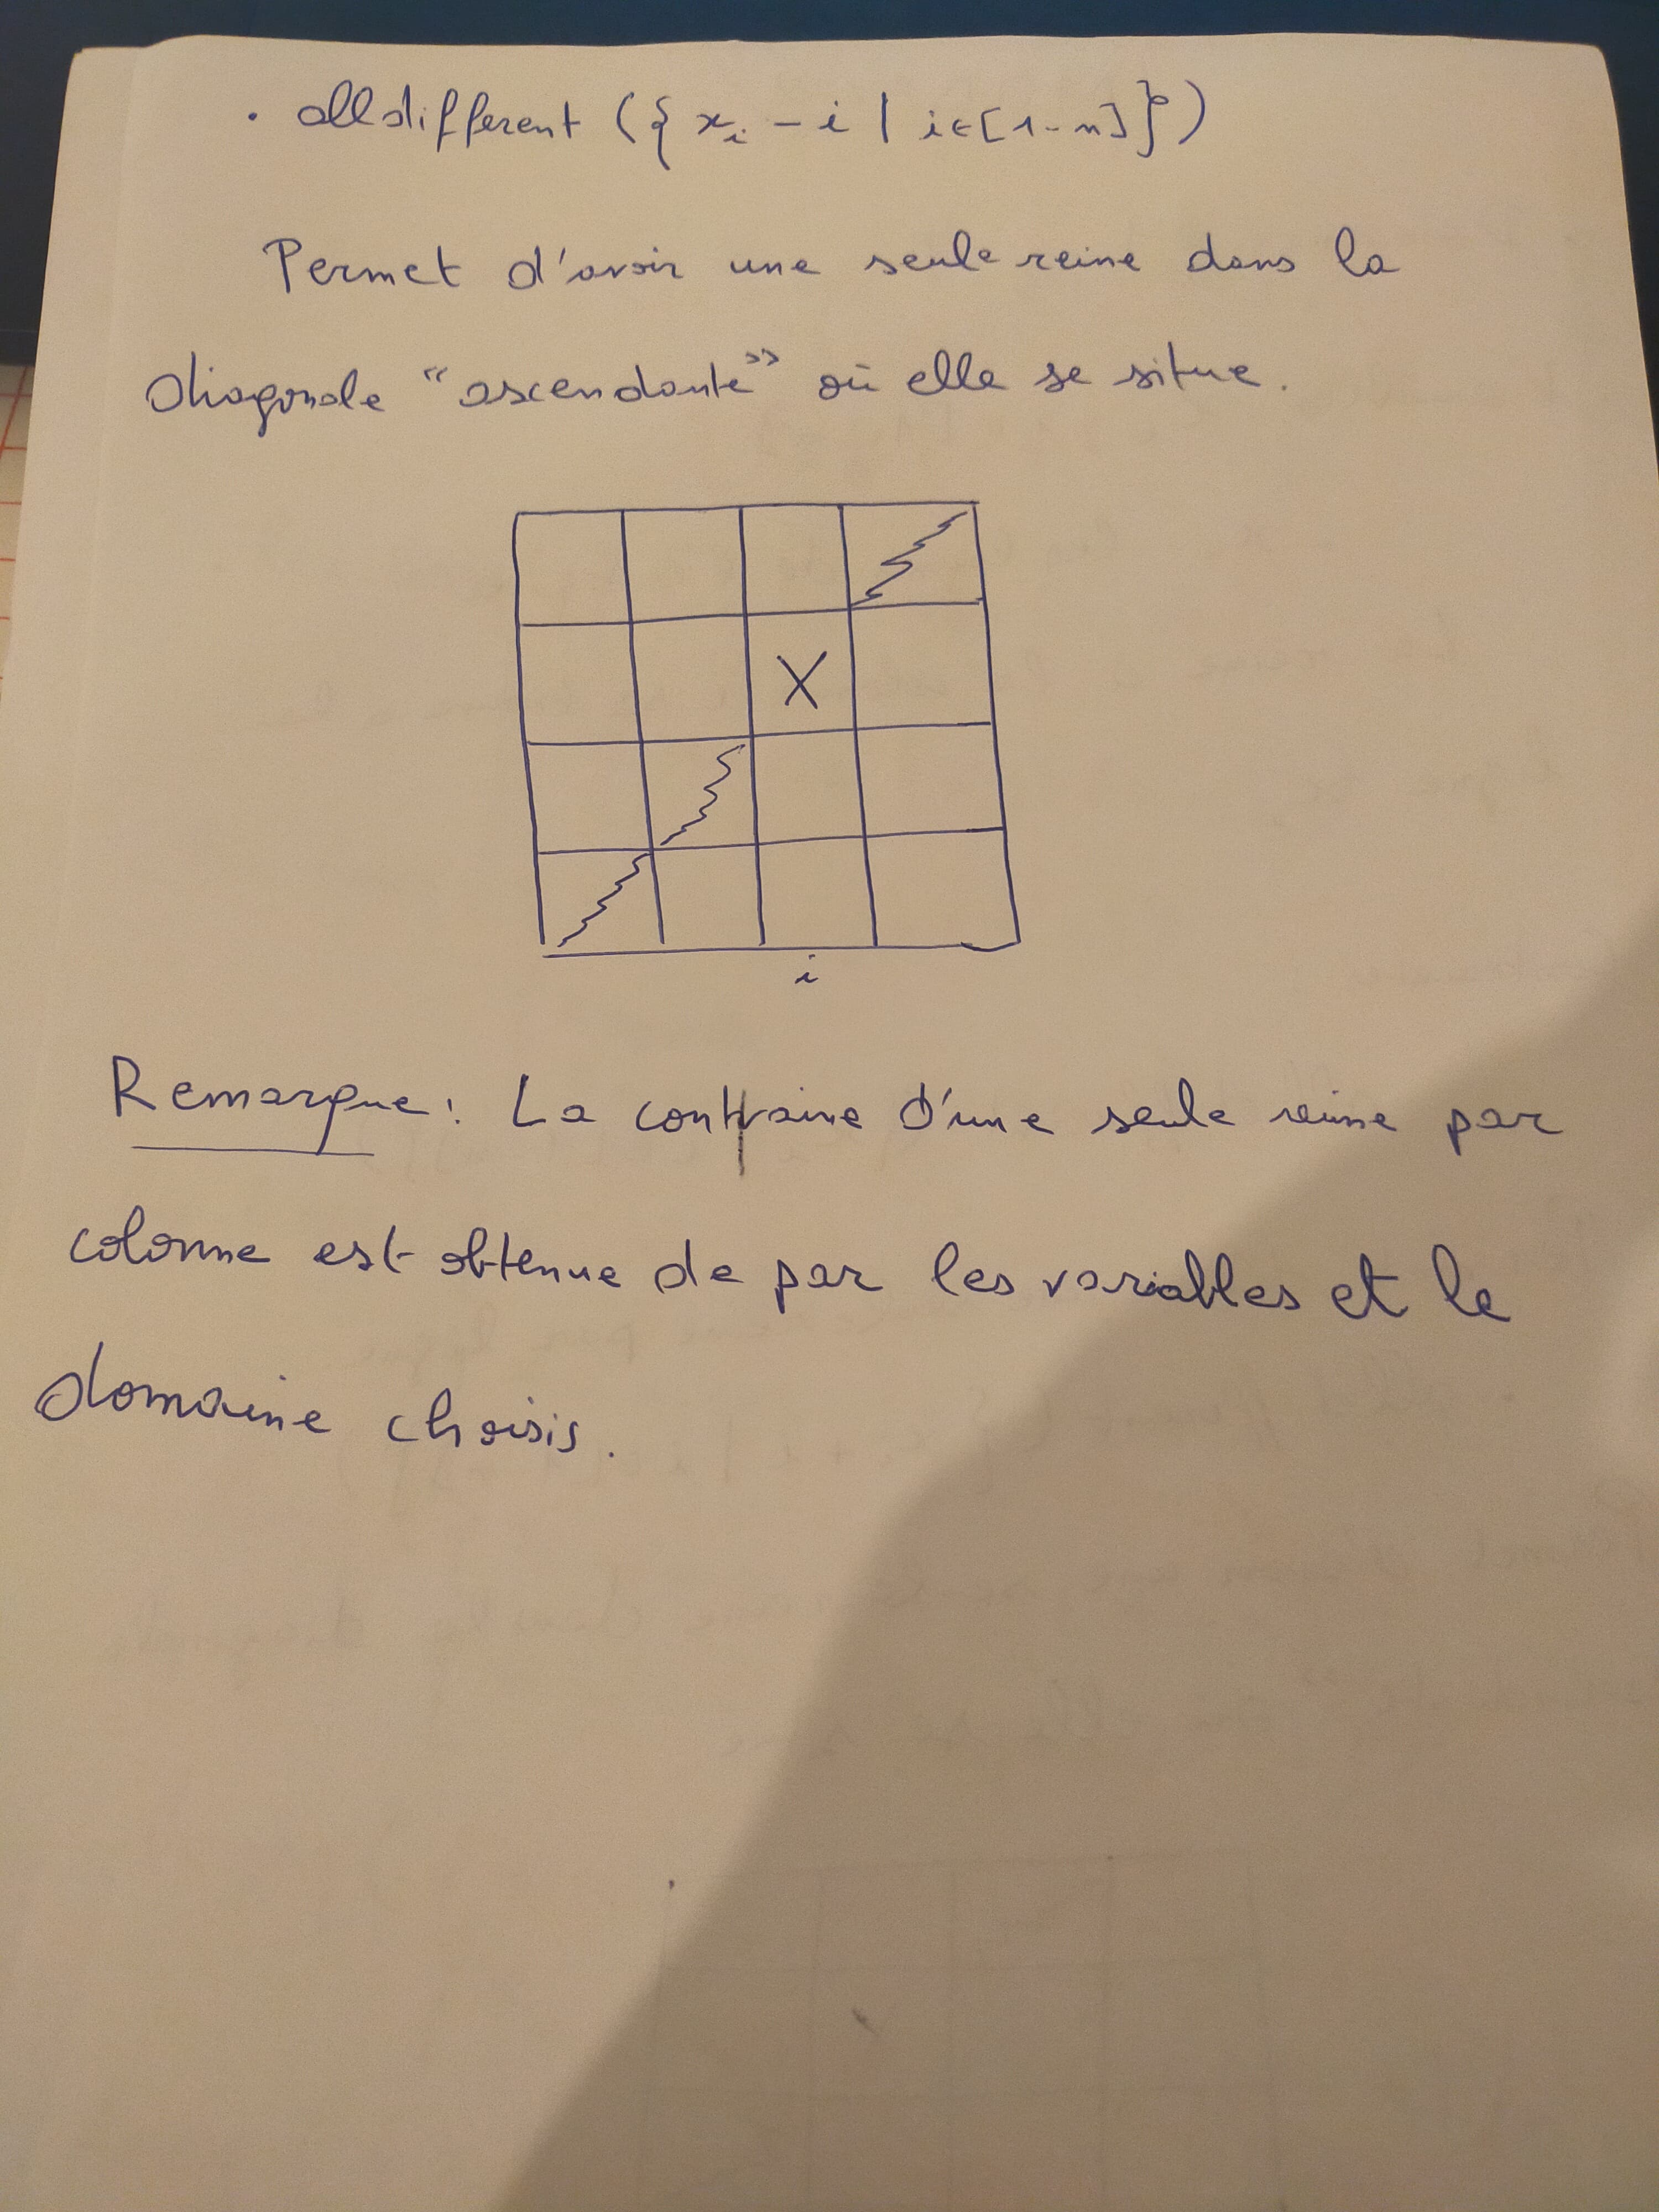 . alldifferent ({ xi - i | i ∈ [1-n] })
Permet d'avoir une seule reine dans la
diagonale "ascendante" où elle se situe.
X
i
Remarque : La contraine d'une seule reine par
colonne est obtenue de par les variables et le
domaine choisis.